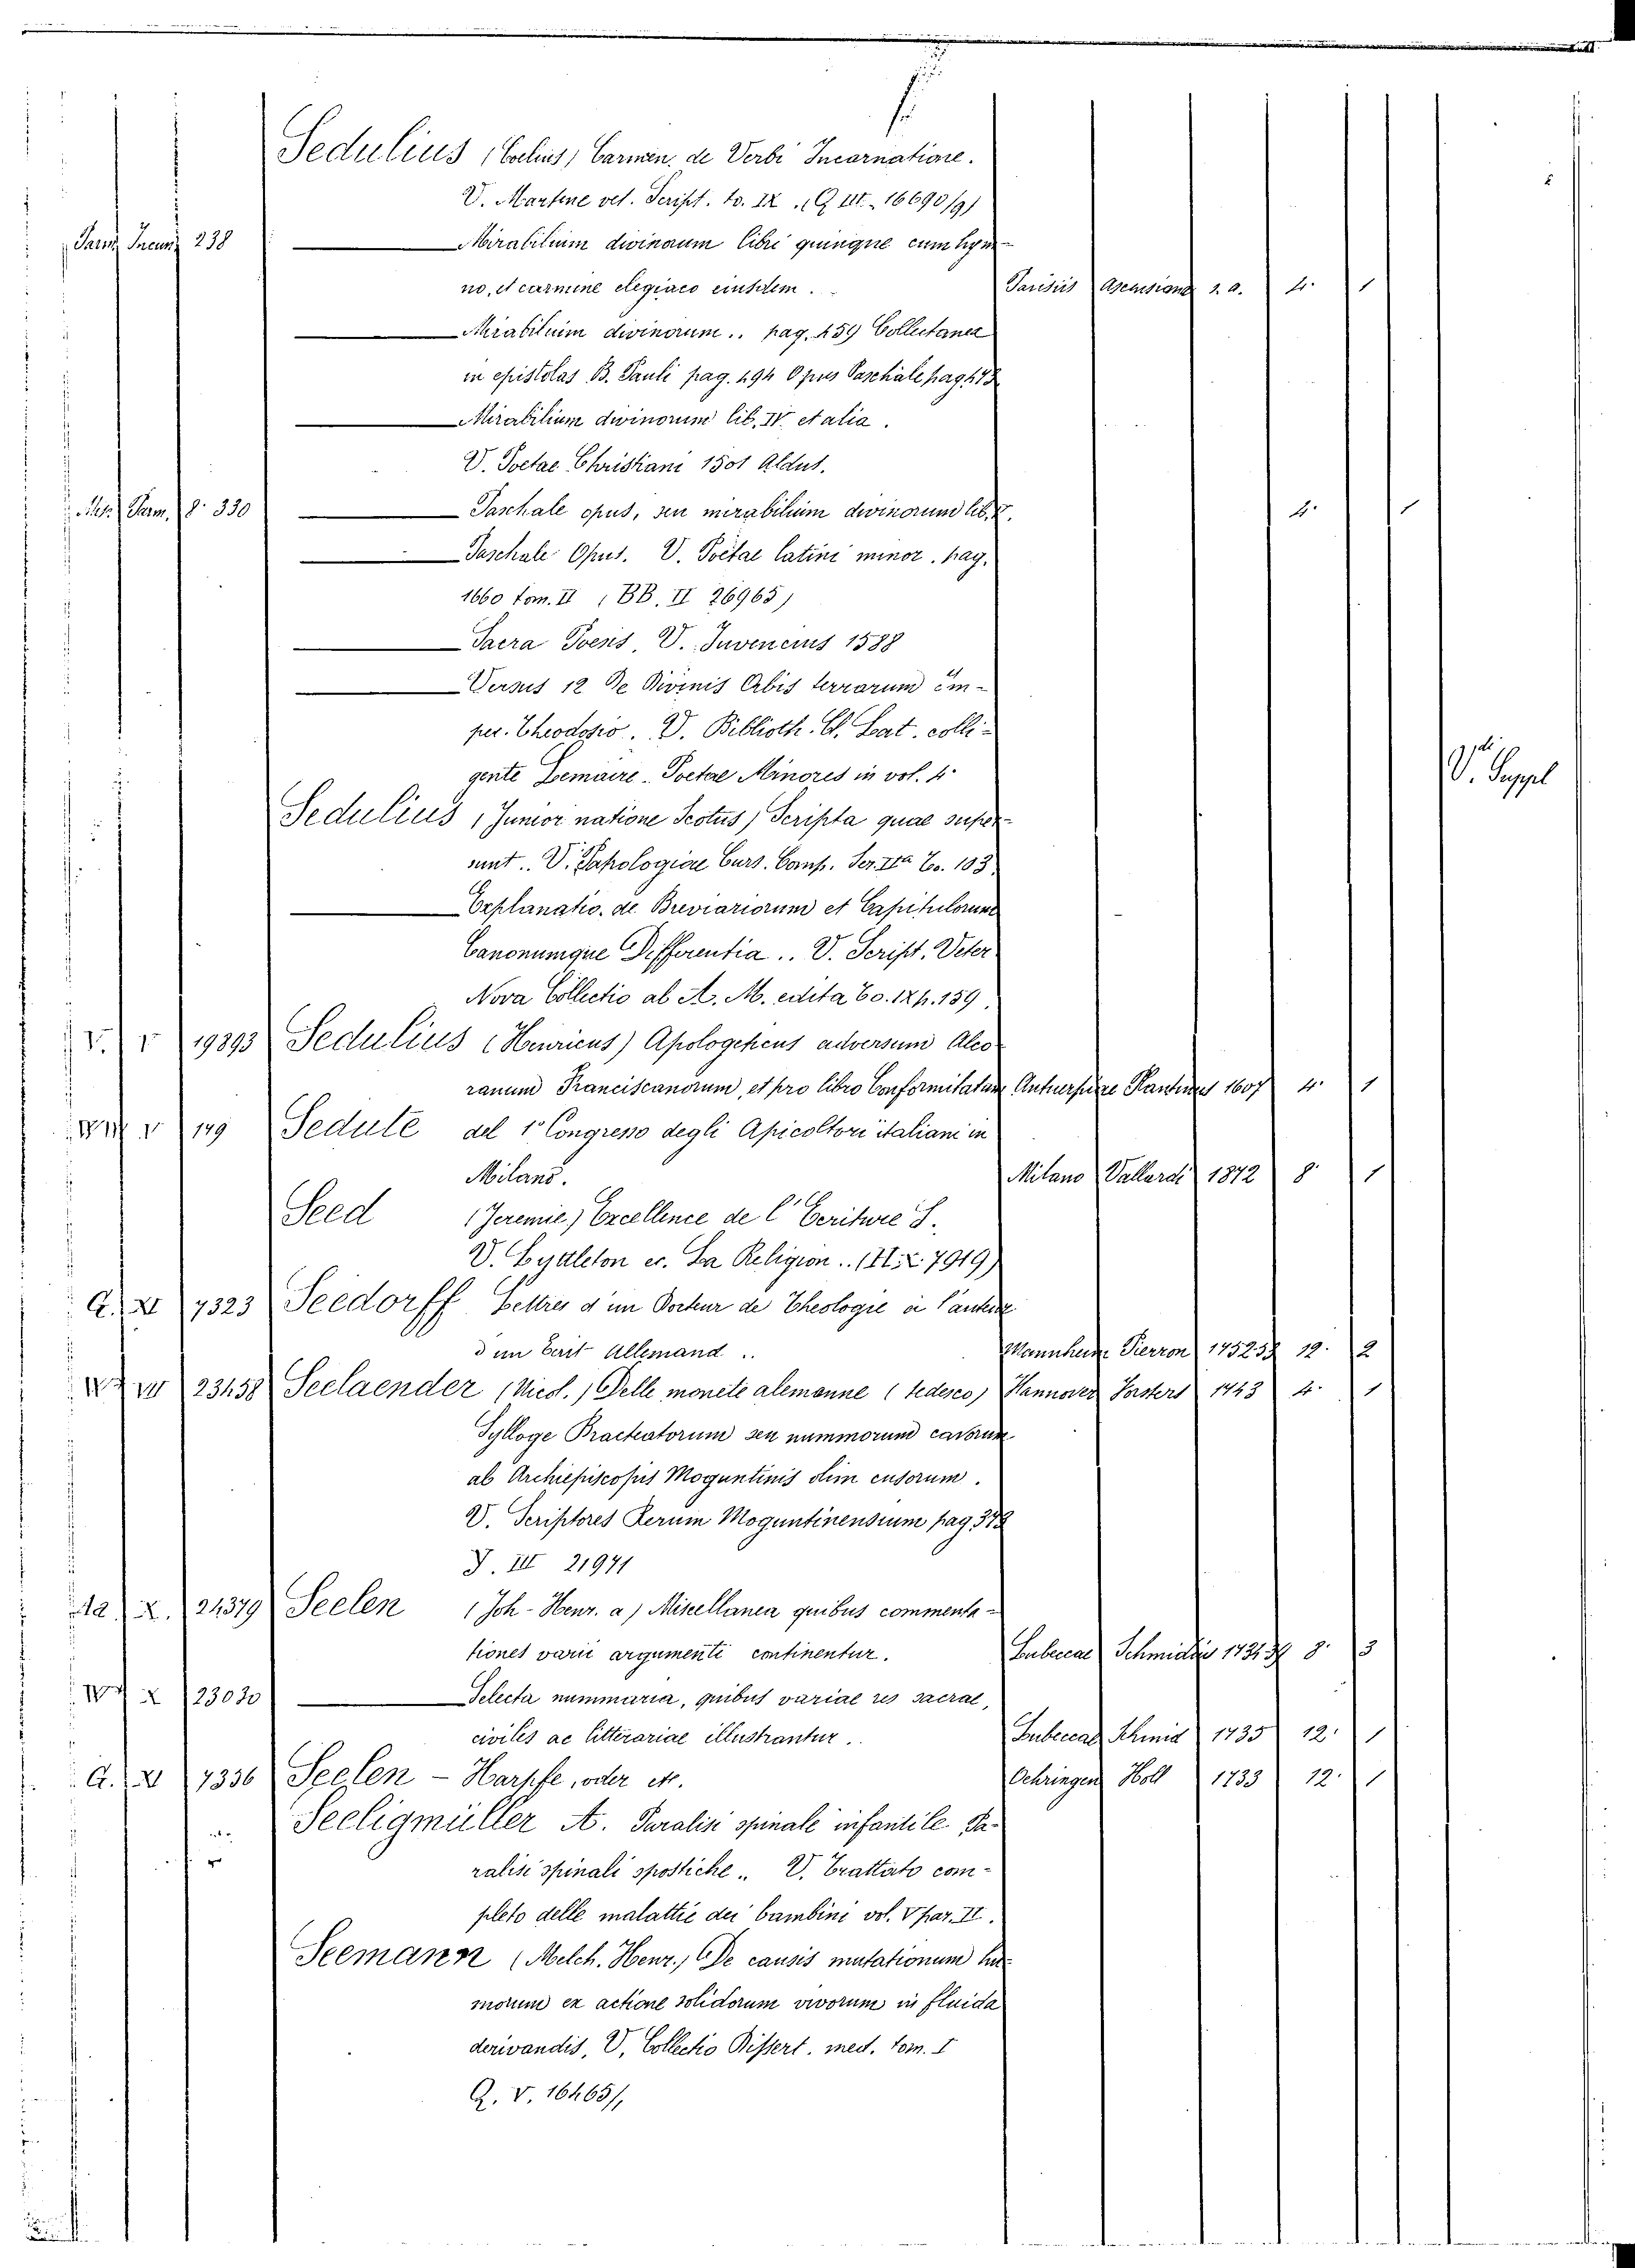 Sedulius (Coelius) Carmen, de Verbi Incarnatione.
V. Martene vet. Script. to. IX. (Q III. 16690/9)
Incun. 238 Mirabilium divinorum libri quinque cum hym-
no, et carmine elegiaco eiusdem. Parisiis Ascensiana s.a. 4. 1
Mirabilium divinorum.. pag. 459 Collectanea
in epistolas B. Pauli pag. 494 Opus Paschale pag. 473
Mirabilium divinorum lib. IV et alia.
V. Poetae Christiani 1501 Aldus.
Parm. 8. 330 Paschale opus, seu mirabilium divinorum lib. V. 4. 1
Paschale Opus. V. Poetae latini minor. pag.
1660 tom. II (BB. II 26965)
Sacra Poesis. V. Juvencius 1588
Versus 12 De Divinis Orbis terrarum im-
per. Theodosio. V. Biblioth. Cl. Lat. colli-
gente Lemaire. Poetae Minores in vol. 4.
V. Suppl
Sedulius (Junior natione Scotus) Scripta quae super-
sunt.. V. Patrologiae Curs. Comp. Ser. IIa To. 103
Explanatio. de Breviariorum et Capitulorum
Canonumque Differentia.. V. Script. Veter
Nova Collectio ab A. M. edita to. 124. 159.
V. V 19893 Sedulius (Henricus) Apologeticus adversum Alco-
ranum Franciscanorum, et pro libro Conformitatum Antuerpiae Plantinus 1607 4. 1
V 149 Sedute del 1° Congresso degli Apicoltori italiani in
Milano. Milano Vallardi 1872 8. 1
Seed (Jeremie) Excellence de l'Ecriture S.
V. Lyttleton ec. La Religion.. (H. X. 7919)
G. XI 7323 Seedorff Lettres d'un Docteur de Theologie a l'auteur
d'un Ecrit Allemand.. Mannheim Pierron 1752 58 12. 2
23458 Seelaender (Nicol.) Delle monete alemanne (tedesco) Hannover Forsters 1743 4. 1
Sylloge Bracteatorum seu nummorum cavorum
ab Archiepiscopis Moguntinis olim cusorum.
V. Scriptores Rerum Moguntinensium pag. 378
J. III 21971
Aa X. 24379 Seelen (Joh-Henr. a) Miscellanea quibus commenta-
tiones varii argumenti continentur. Lubeccae Schmidius 1734 39 8. 3
X 23030 Selecta nummaria, quibus variae res sacrae,
civiles ac litterariae illustrantur. Lubeccae Schmid 1735 12. 1
G. XI 7336 Seelen - Harpfe, oder etc. Oehringen Holl 1733 12. 1
Seeligmüller A. Paralisi spinale infantile. Pa-
ralisi spinali spastiche.. V. Trattato com-
pleto delle malattie dei bambini vol. V par. II.
Seemann (Melch. Henr.) De causis mutationum hu-
morum ex actione solidorum vivorum in fluida
derivandis, V. Collectio Dissert. med. tom. I
Q. V. 16465/,